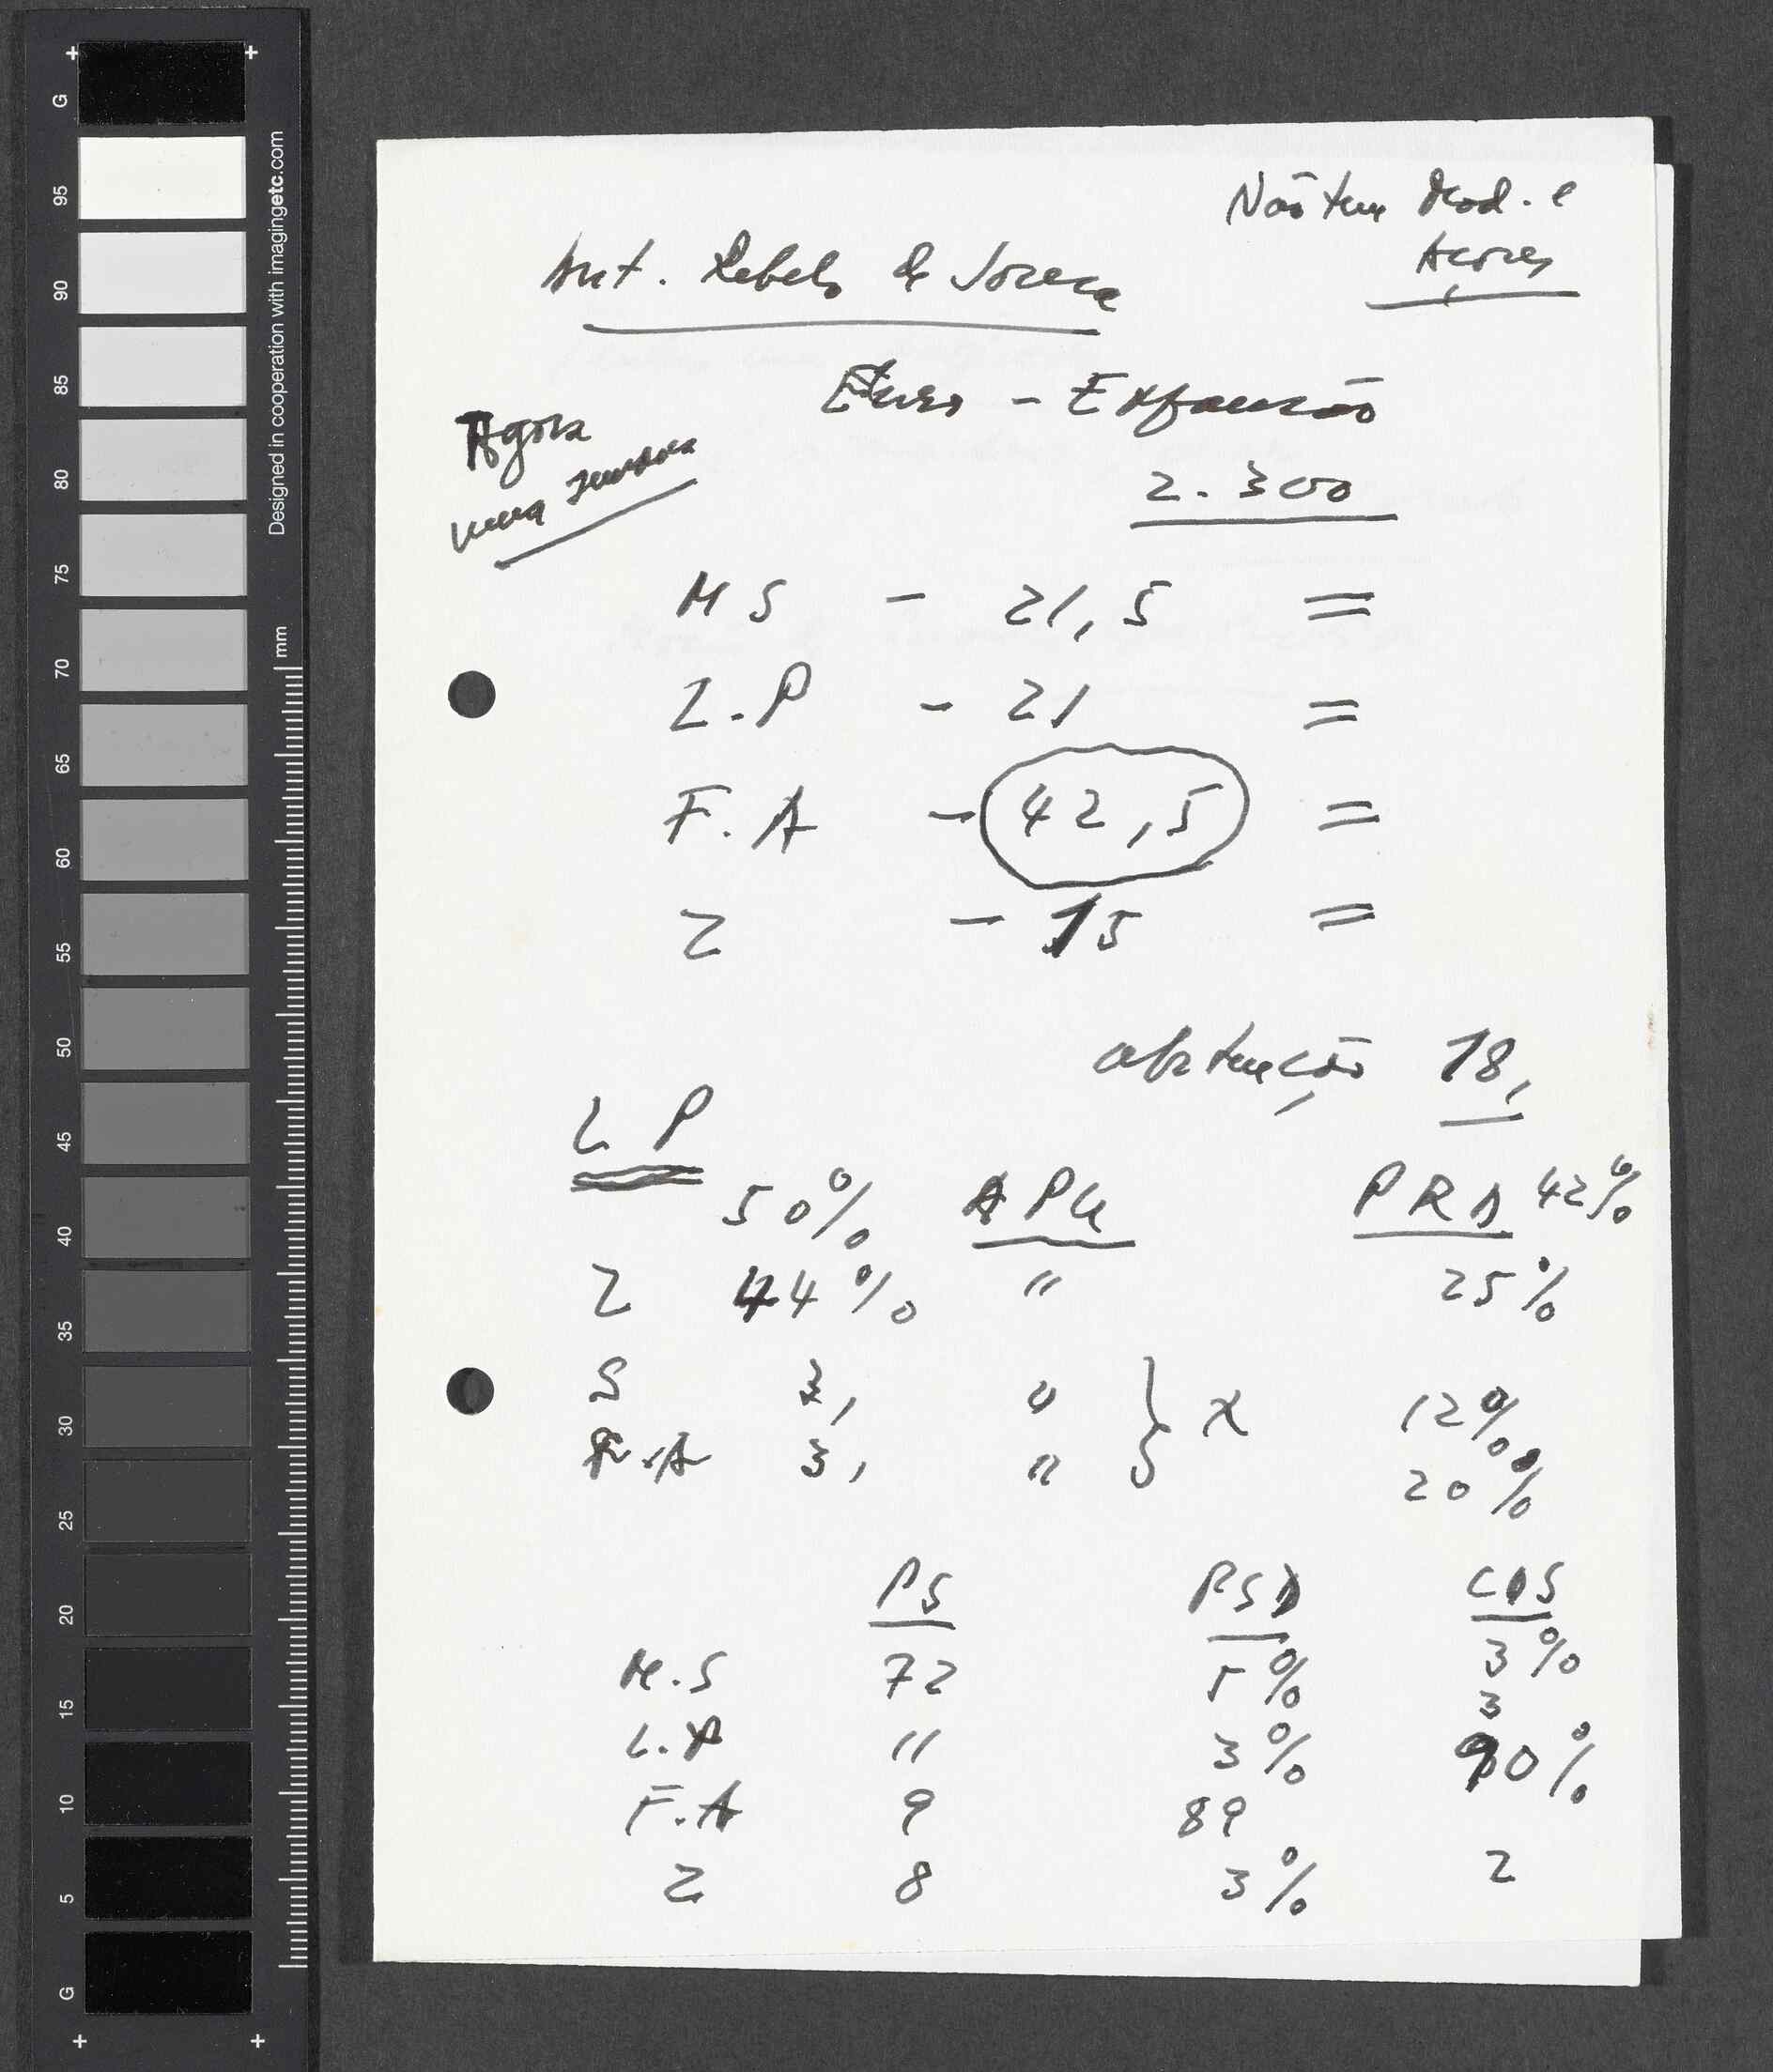 Não tem Mad. e
Açores
Ant. Rebelo de Sousa
Euro - Expansão
Agora
uma semana
2.300
M S - 21,5 =
L.P - 21 =
F.A - 42,5 =
Z - 15 =
abstenção 18,
L P
50% APU PRD 42%
Z 44% " 25%
S 3, " } x 12%
F.A 3, " 20%
PS PSD CDS
M.S 72 5% 3%
L.P " 3% 3
F.A 9 89 90%
Z 8 3% 2
G
95
90
85
80
75
70
65
60
55
50
45
40
35
30
25
20
15
10
5
G
mm
Designed in cooperation with imagingetc.com